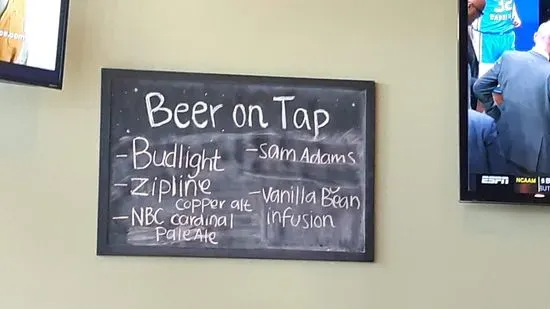 Beer on Tap
- Budlight
- Zipline
copper alt
- NBC cardinal
Pale Ale
- Sam Adams
- Vanilla Bean
infusion
32
ESPN
NCAAM